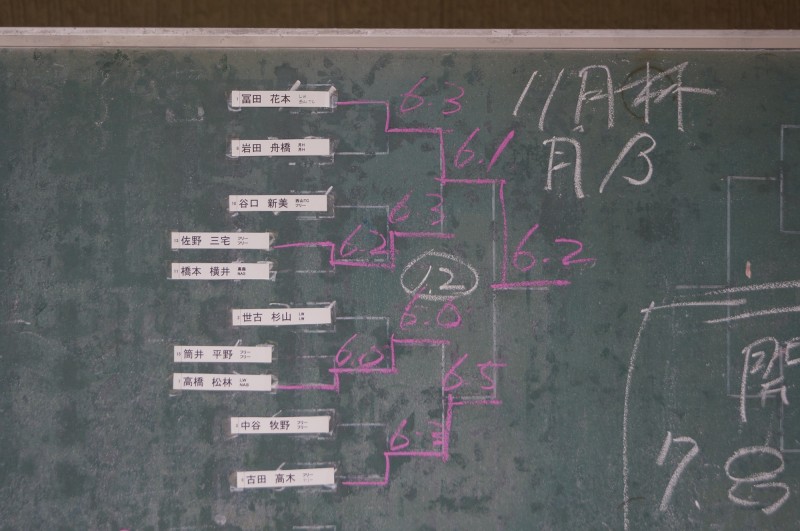 11月杯
月 B
冨田 花本
6.3
岩田 舟橋
6.1
谷口 新美
6.3
佐野 三宅
6.2
橋本 横井
6.2
1.2
世古 杉山
6.0
筒井 平野
6.0
高橋 松林
6.5
中谷 牧野
古田 高木
開
7号